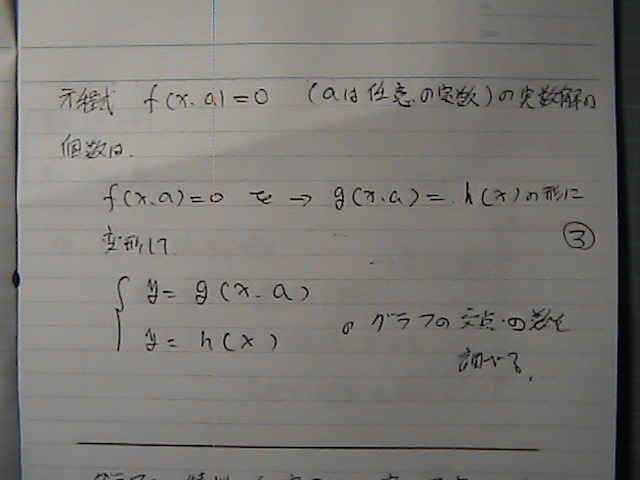 方程式 f(x.a)=0 (aは任意の定数)の実数解の
個数は.
f(x.a)=0 を → g(x.a)= h(x)の形に
変形して ③
y= g(x.a)
y= h(x) のグラフの交点の数を
調べる.